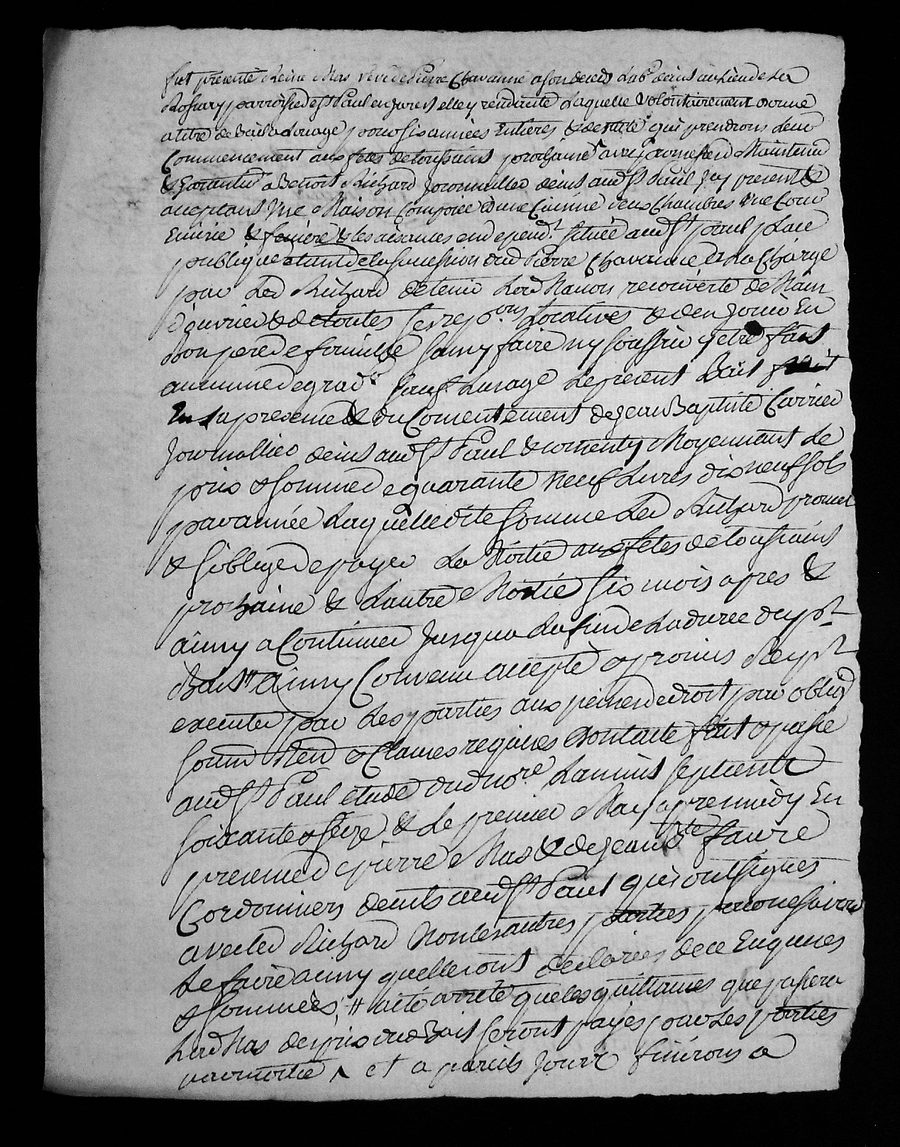 fut presente Reine Mas veuve de Pierre Chavanne a son deces demt au lieu de La
Rossary parroisse de st Paul en Jarest elle y rendente Laquelle volontairement donne
a titre de Bail a Louage pour six années Entieres & de suite qui prendrons leur
Commencement aux fêtes de toussaints prochaine avec promesse de Maintenir
& garantir a Benoit Richard Journallier demt aud st Paul Icy present &
acceptant Une Maison Composée d'une Cuisine deux Chambres Une Cour
Ecurie & feniere & les aisances en depend.t située aud st paul place
publique etant de la succession dud Pierre Chavanne et La Charge
par Led Richard de tenir Lad Maison recouverte de Main
d'ouvrier & de toutes ses rep.ons Locatives & d'en Jouir En
bon pere de famille sans y faire ny souffrir y etre fait
aucunne degrad.on sauf Lusage Le present Bail fait
En la presence & du Consentement de Jean Baptiste Carrier
Journallier demt aud st Paul & moyennant Le
prix & somme de quarante neuf Livres dix neuf sols
par année Laquelle dite somme Led Richard promet
& s'oblige de payer La Moitié aux fêtes de toussaints
prochaine & L'autre Moitié six mois apres &
ainsy a Continuer Jusqua La fin de La durée du pnt
Bail ainsy Convenu accepté & promis
executer par Les parties aux peines de droit par oblig
soum Ren & Clauses requises dont acte fait & passé
aud st Paul etude dud no.re L'an mil sept cent
soixante & seize & Le premier May apres midy En
presence de pierre Mas & de Jean Bte faure
Cordonniers demts aud st Paul qui ont signés
avec led Richard Non Les autres parties pour ne sçavoir
Le faire ainsy quelles ont declarées de ce Enquises
& sommées arreté que Les quittances que passera
Lad Mas du prix dud Bail seront payés par Les parties
par moitié et a pareils Jours finirons a